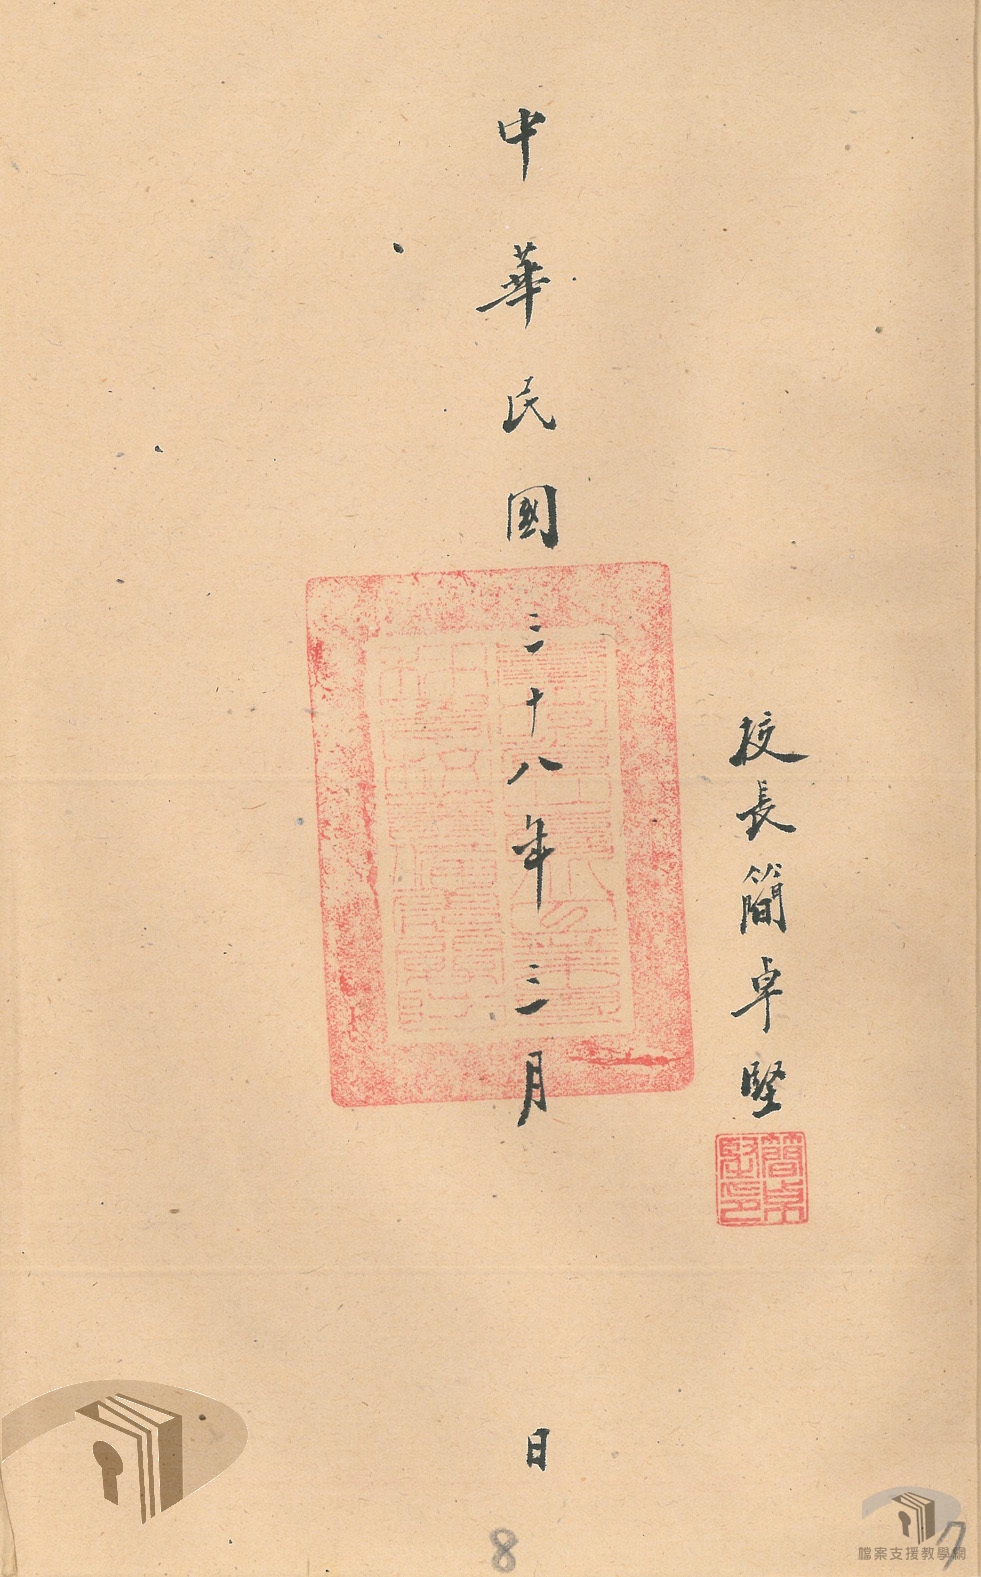 校長簡卓堅
簡卓
堅印
中華民國三十八年三月 日
8
7
檔案支援教學網